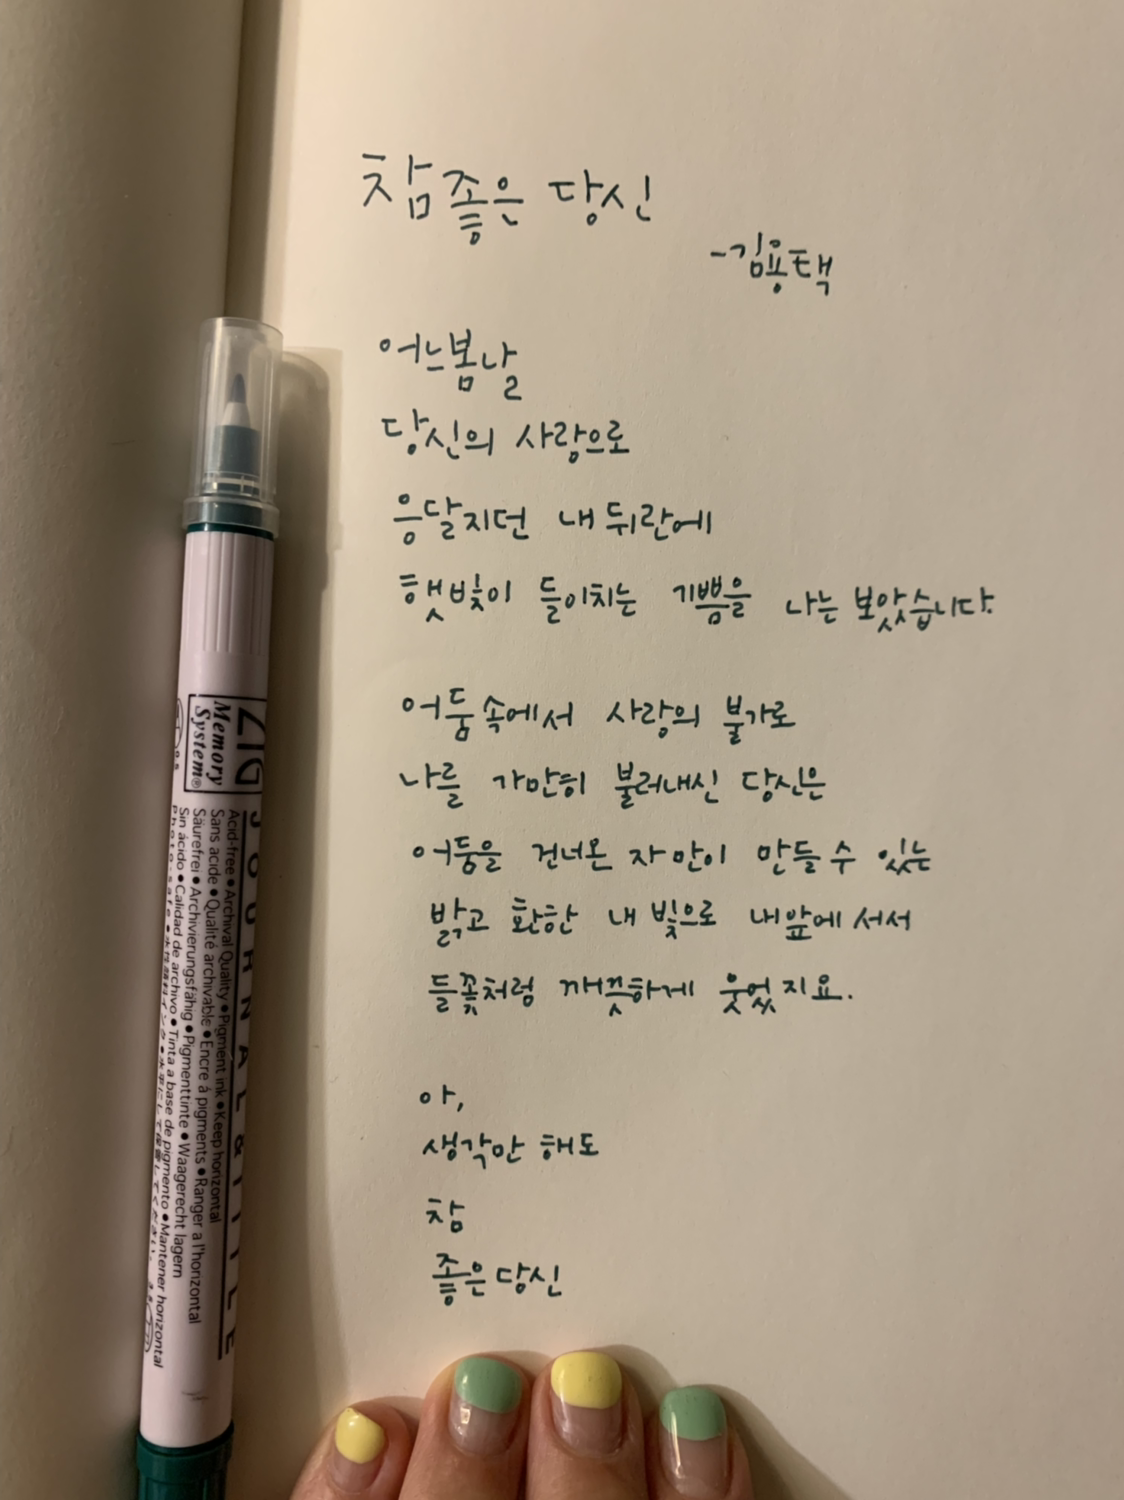 참 좋은 당신
-김용택
어느 봄날
당신의 사랑으로
응달지던 내 뒤란에
햇빛이 들이치는 기쁨을 나는 보았습니다.
어둠속에서 사랑의 불가로
나를 가만히 불러내신 당신은
어둠을 건너온 자만이 만들 수 있는
밝고 환한 내 빛으로 내앞에 서서
들꽃처럼 깨끗하게 웃었지요.
아,
생각만 해도
참
좋은 당신
ZIG
Memory System®
JOURNAL & TITLE
Acid-free • Archival Quality • Pigment ink • Keep horizontal
Sans acide • Qualité archivable • Encre à pigments • Ranger a l'horizontal
Säurefrei • Archivierungsfähig • Pigmenttinte • Waagerecht lagern
Sin ácido • Calidad de archivo • Tinta a base de pigmento • Mantener horizontal
Photo-safe